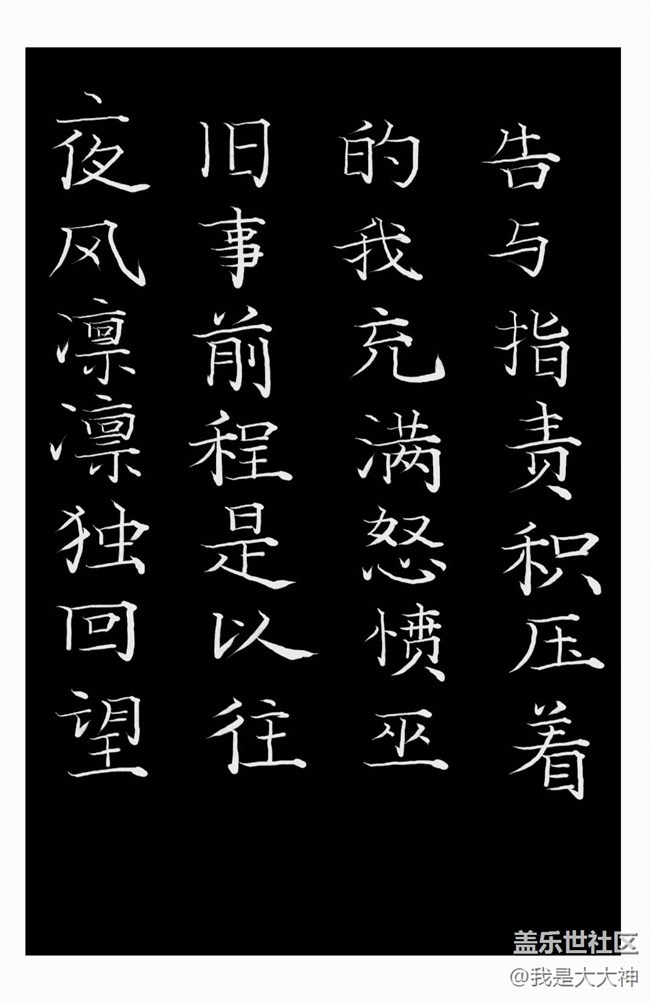 夜风凛凛独回望
旧事前程是以往
的我充满怒愤巫
告与指责积压着
盖乐世社区
@我是大大神